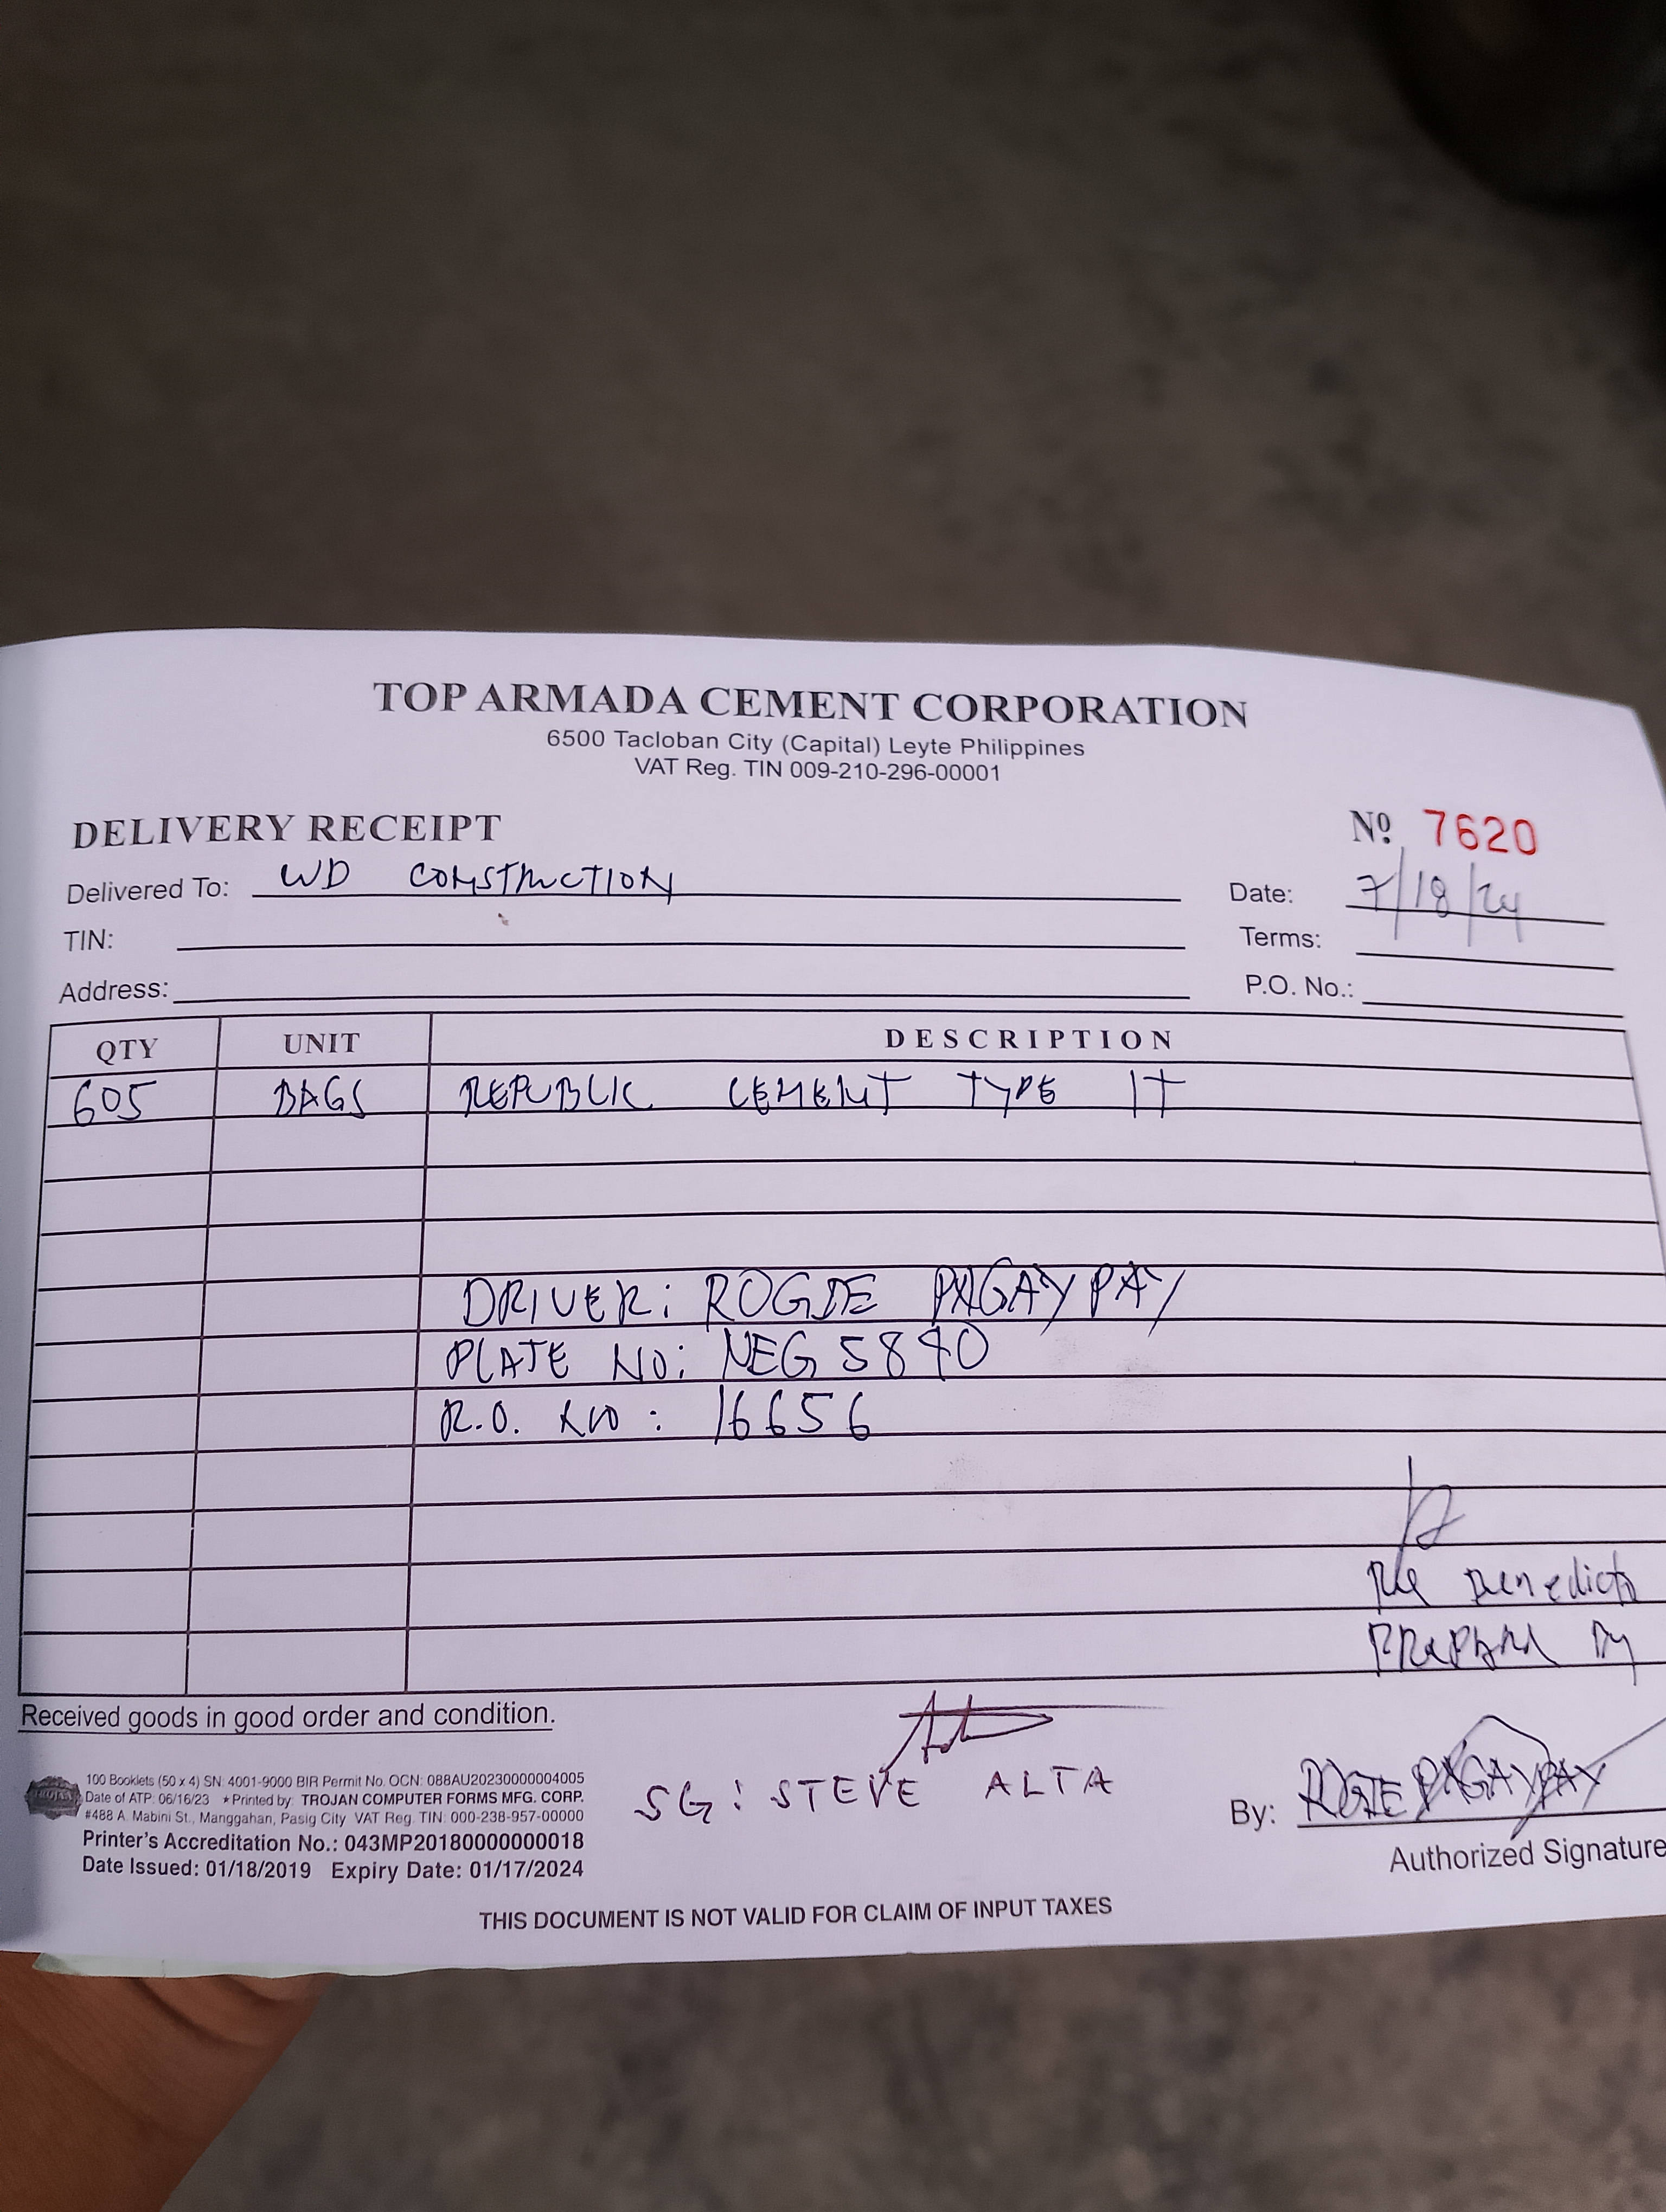 TOP ARMADA CEMENT CORPORATION
6500 Tacloban City (Capital) Leyte Philippines
VAT Reg. TIN 009-210-296-00001
DELIVERY RECEIPT
Nº 7620
Delivered To: WD CONSTRUCTION
Date: 7/18/24
TIN:
Terms:
Address:
P.O. No.:
QTY UNIT DESCRIPTION
605 BAGS REPUBLIC CEMENT TYPE 1T
DRIVER: ROGIE PAGAYPAY
PLATE NO: NEG 5890
R.O. NO: 16656
Benedicto
PREPARED BY
Received goods in good order and condition.
SG: STEVE ALTA
100 Booklets (50 x 4) SN: 4001-9000 BIR Permit No. OCN: 088AU20230000004005
Date of ATP: 06/16/23 ★Printed by: TROJAN COMPUTER FORMS MFG. CORP.
#488 A. Mabini St., Manggahan, Pasig City VAT Reg. TIN: 000-238-957-00000
Printer's Accreditation No.: 043MP20180000000018
Date Issued: 01/18/2019 Expiry Date: 01/17/2024
By: ROGIE PAGAYPAY
Authorized Signature
THIS DOCUMENT IS NOT VALID FOR CLAIM OF INPUT TAXES